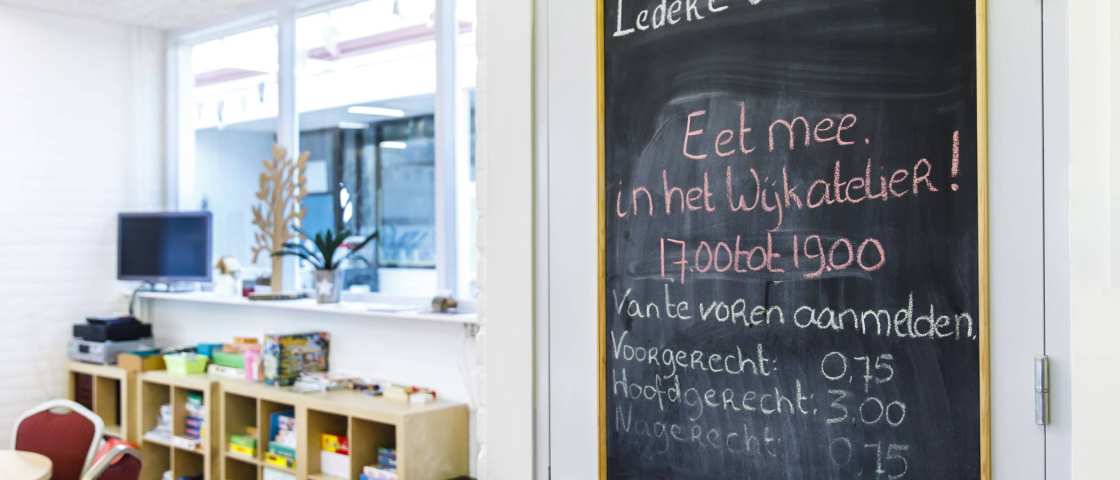 Iedere
Eet mee.
in het Wijkatelier!
17.00 tot 19.00
Van te voren aanmelden.
Voorgerecht: 0,75
Hoofdgerecht: 3.00
Nagerecht: 0,75